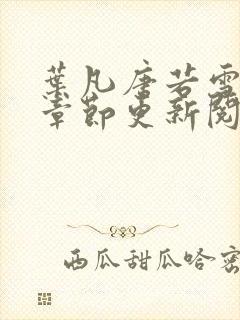 葉凡唐若雪
章節更新閱
西瓜甜瓜哈密